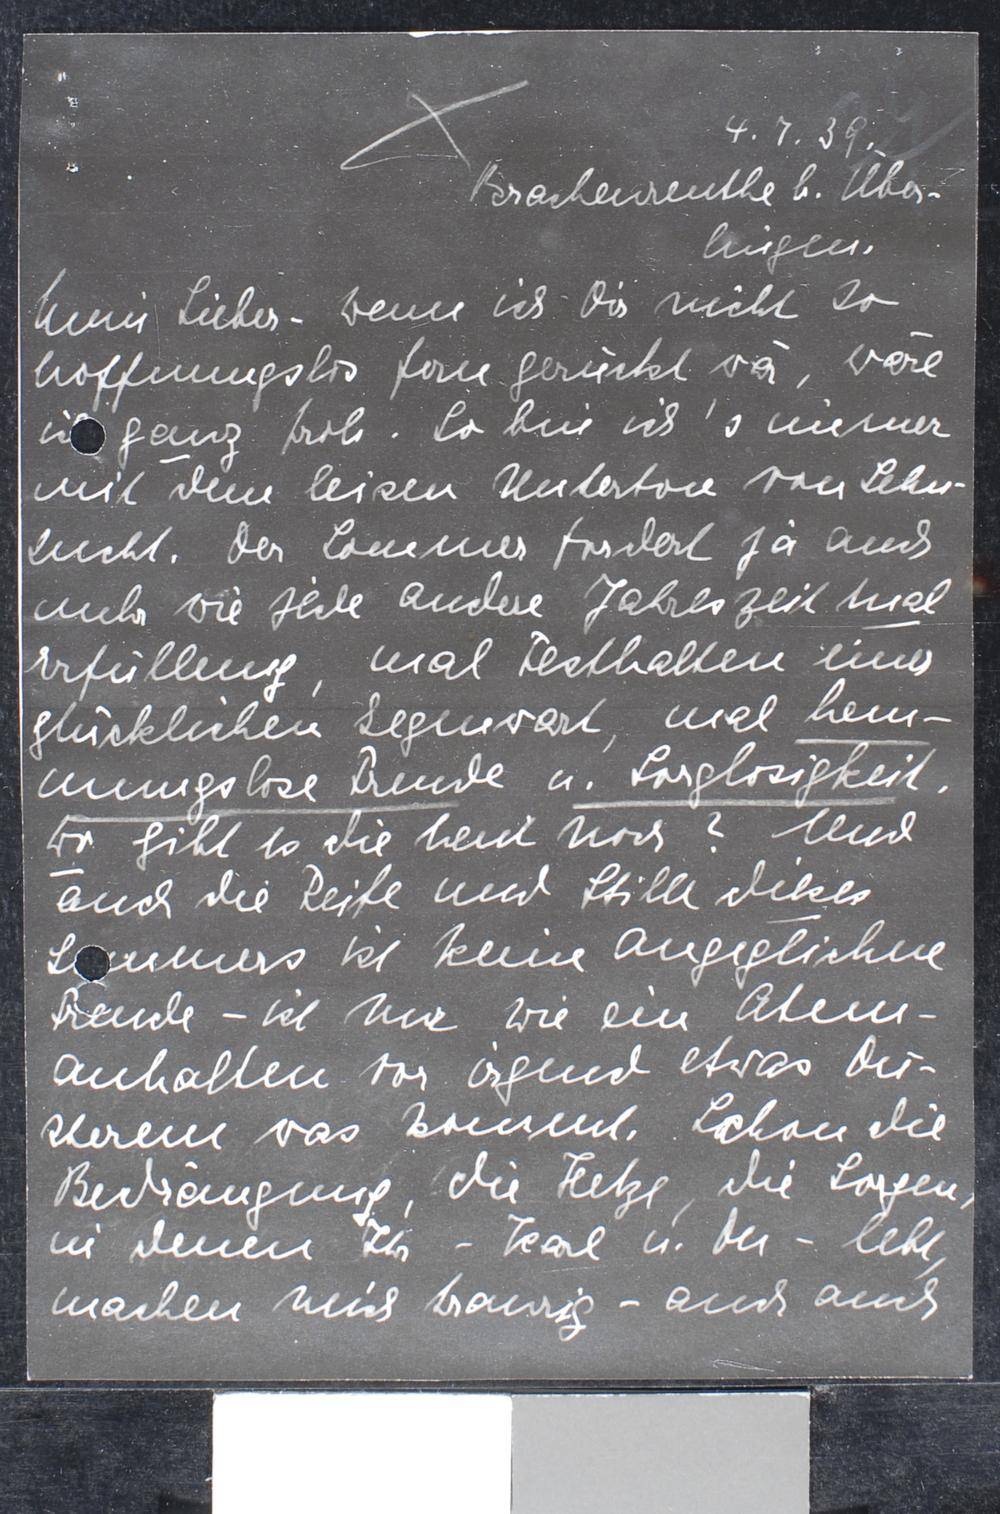 4.7.39.
Brachenreuthe b. Über-
lingen.
Mein Lieber - wenn ich Dir nicht so
hoffnungslos fern gerückt wär, wäre
ich ganz froh. So bin ich's immer
mit dem leisen Unterton von Sehn-
sucht. Der Sommer fordert ja auch
mehr wie jede andere Jahreszeit mal
Erfüllung, mal Festhalten einer
glücklichen Gegenwart, mal hem-
mungslose Freude u. Sorglosigkeit.
Wo gibt es die heut noch? Und
auch die Reife und Stille dieses
Sommers ist keine
Freude - ist nur wie ein Atem-
anhalten vor irgend etwas Dü-
sterem was kommt. Schon die
Bedrängung, die Hetze, die Sorgen,
in denen Ihr - Karl u. Du - lebt,
machen mich traurig - auch auch